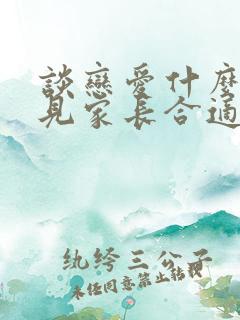 談戀愛什麼
見家長合適
纨绔三公子
未经同意禁止转载